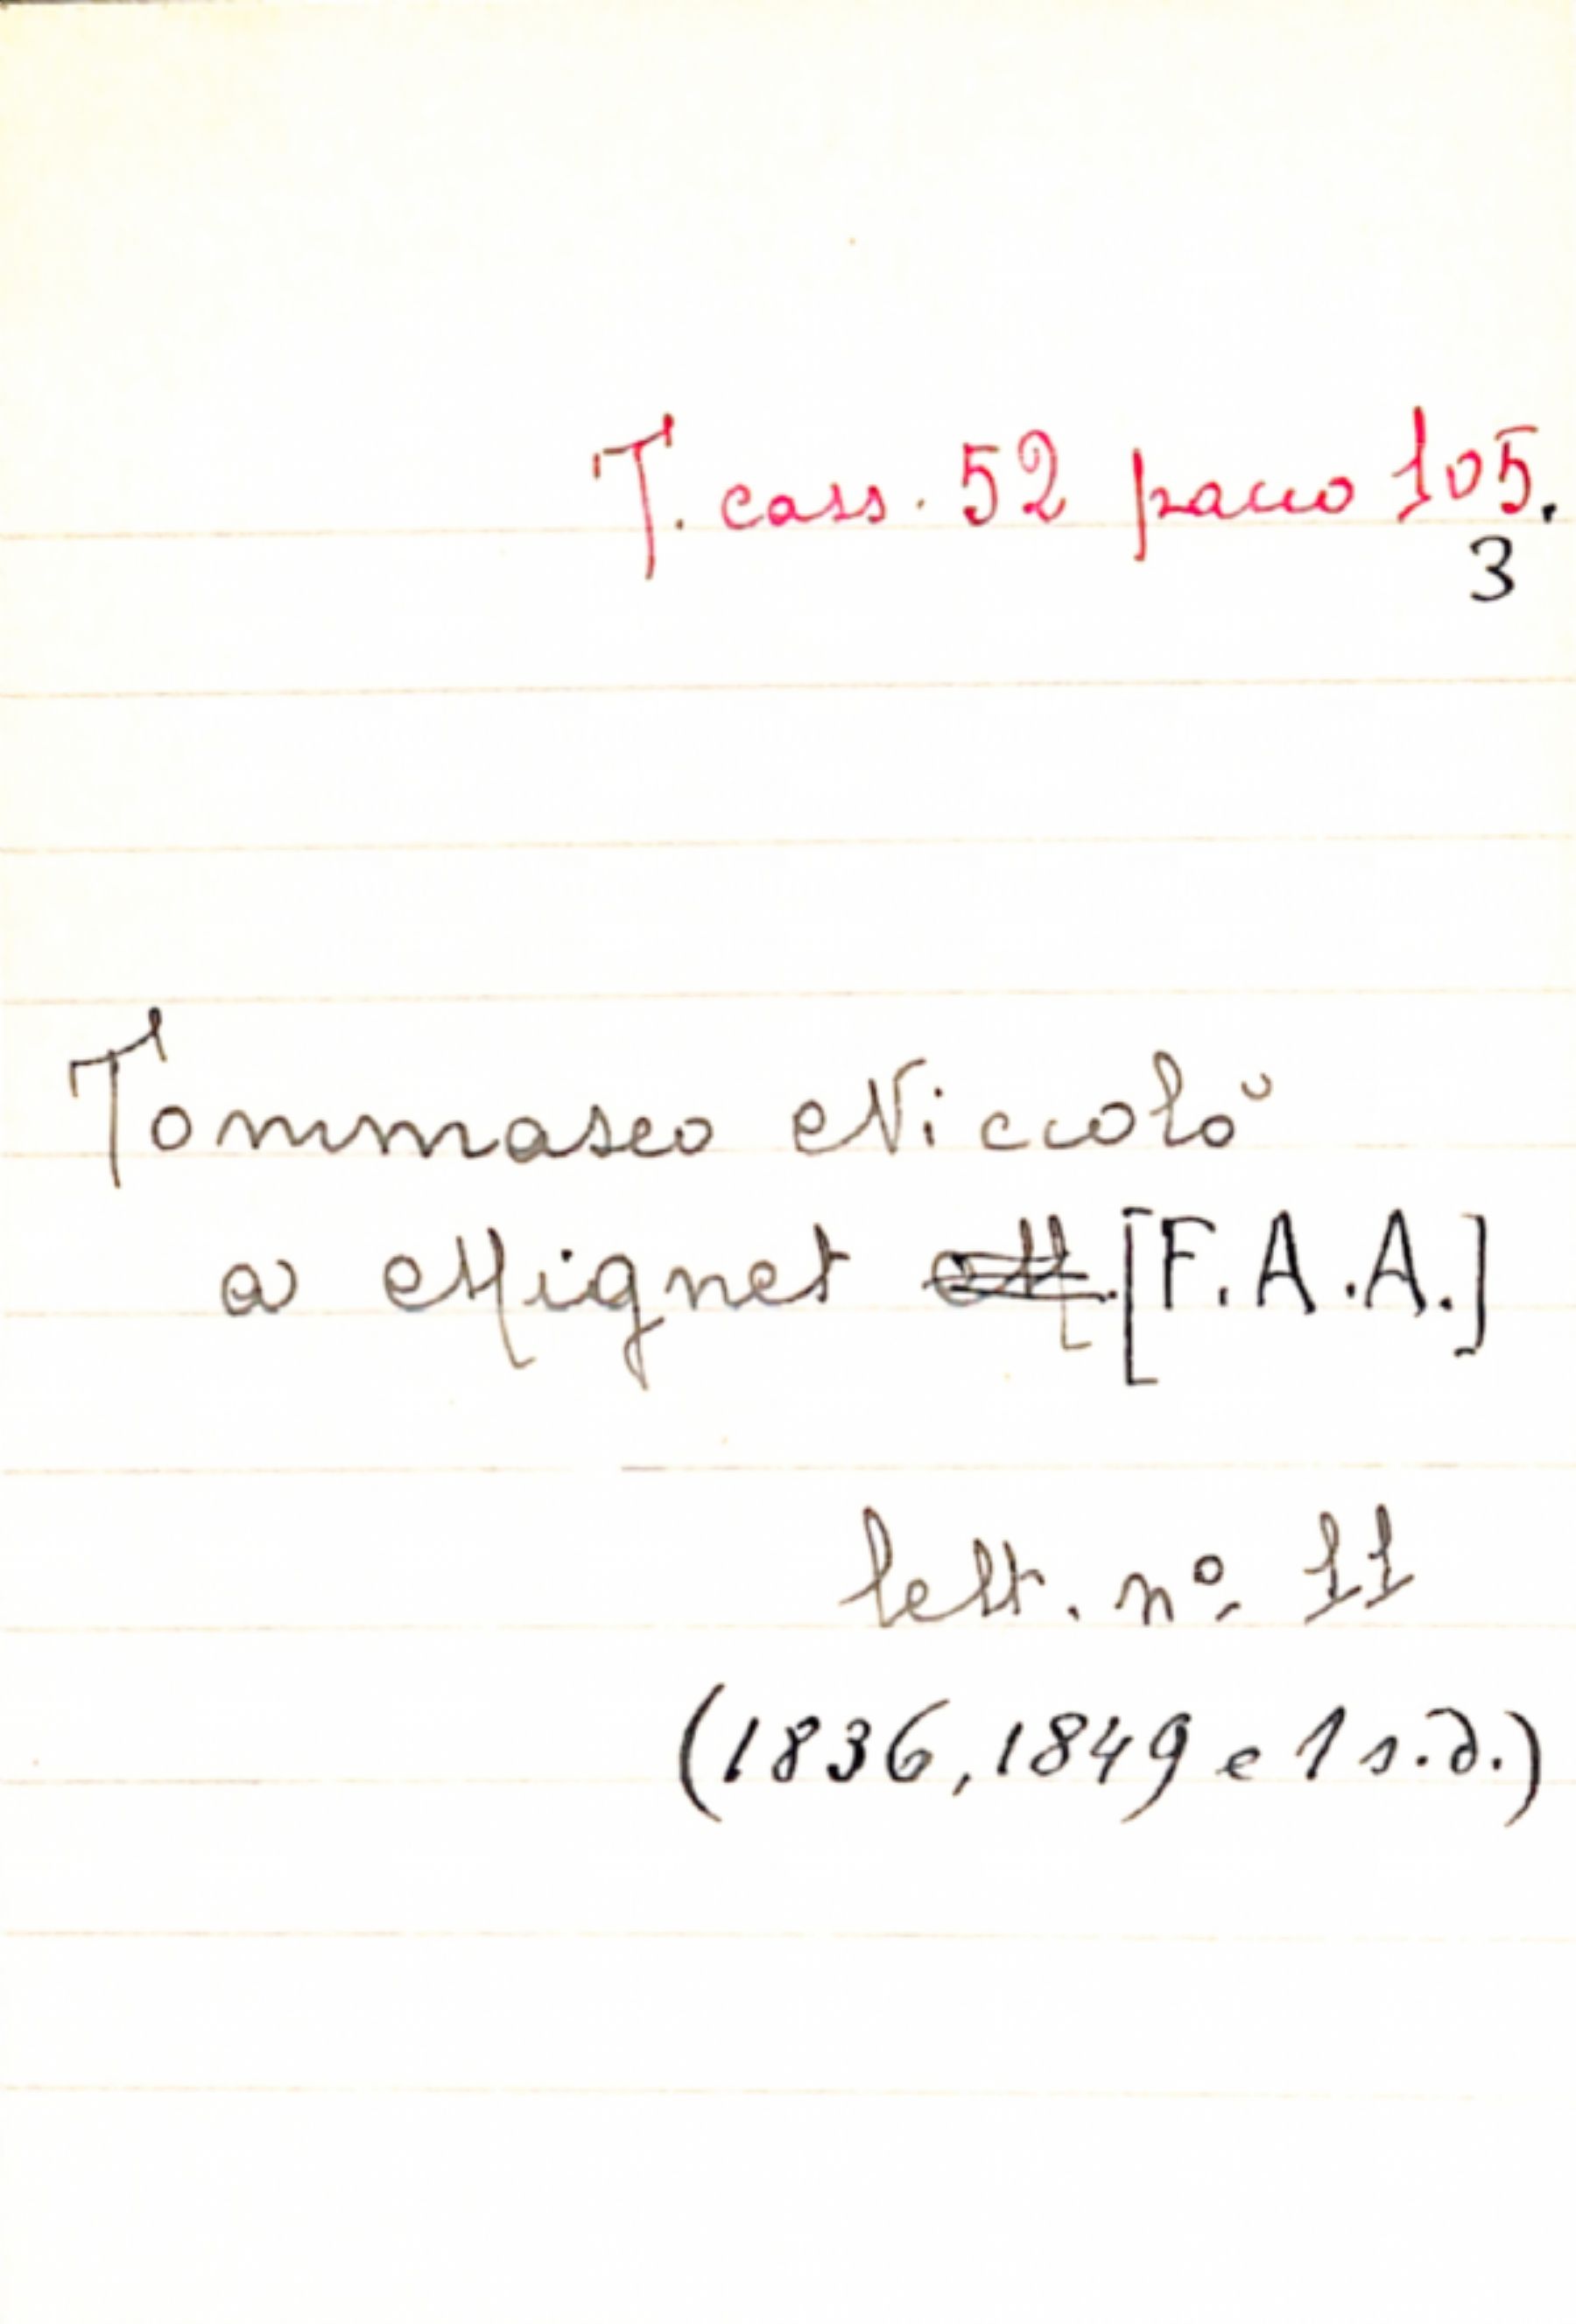 T. cass. 52 pacco 105.
3
Tommaseo Niccolò
a Mignet M. [F.A.A.]
lett. nº 11
(1836, 1849 e 1 s.d.)